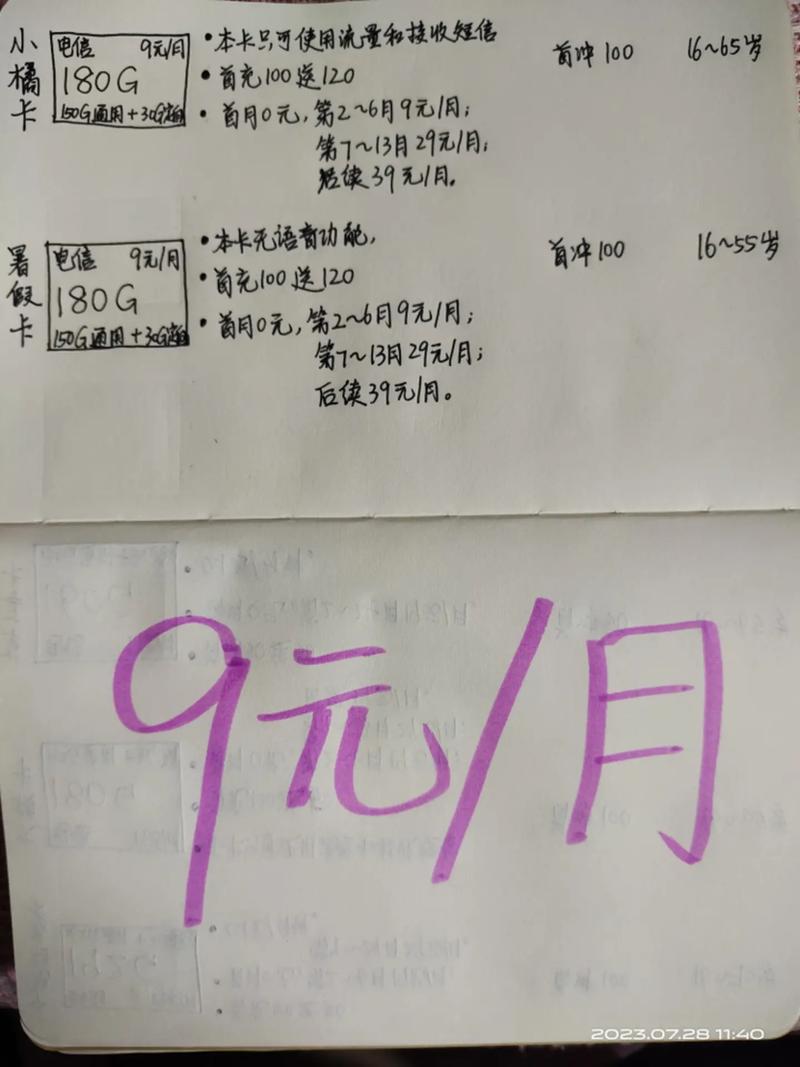 小橘卡
电信 9元/月
180G
150G通用+30G定向
•本卡只可使用流量和接收短信
•首充100送120
•首月0元,第2~6月9元/月;
第7~13月29元/月;
后续39元/月。
首冲100
16~65岁
暑假卡
电信 9元/月
180G
150G通用+30G定向
•本卡无语音功能,
•首充100送120
•首月0元,第2~6月9元/月;
第7~13月29元/月;
后续39元/月。
首冲100
16~55岁
9元/月
2023.07.28 11:40